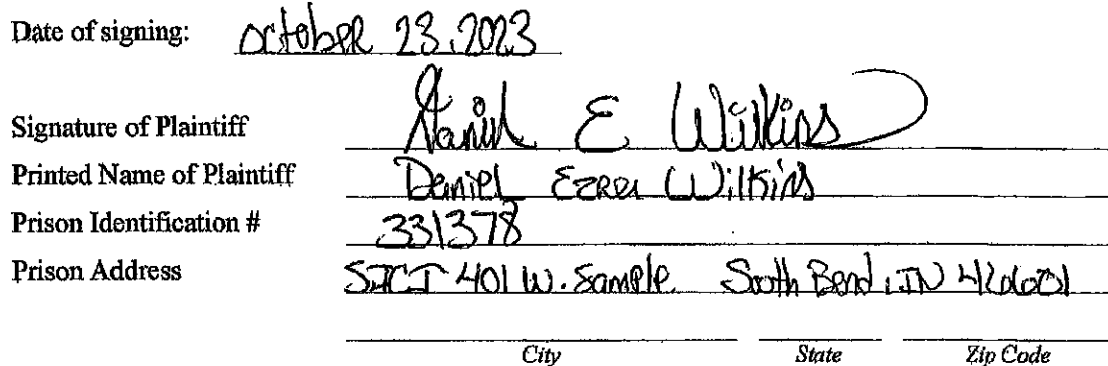 Date of signing: October 23, 2023
Signature of Plaintiff Daniel E Wilkins
Printed Name of Plaintiff Daniel Ezra Wilkins
Prison Identification # 331378
Prison Address SJCJ 401 W. Sample. South Bend, IN 46601
City State Zip Code